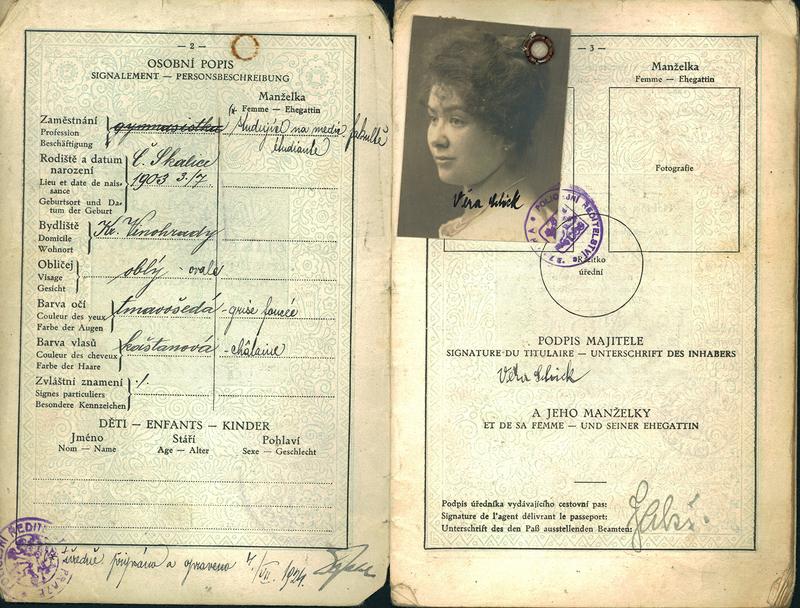 — 2 —
OSOBNÍ POPIS
SIGNALEMENT — PERSONSBESCHREIBUNG
Manželka
Femme — Ehegattin
Zaměstnání
Profession
Beschäftigung
gymnasistka
studující na medic. fakultě
étudiante
Rodiště a datum
narození
Lieu et date de nais-
sance
Geburtsort und Da-
tum der Geburt
Č. Skalice
1903 3./7
Bydliště
Domicile
Wohnort
Kr. Vinohrady
Obličej
Visage
Gesicht
oblý - ovale
Barva očí
Couleur des yeux
Farbe der Augen
tmavošedá - grise foncée
Barva vlasů
Couleur des cheveux
Farbe der Haare
kaštanová - châtaine
Zvláštní znamení
Signes particuliers
Besondere Kennzeichen
./.
DĚTI — ENFANTS — KINDER
Jméno
Nom — Name
Stáří
Age — Alter
Pohlaví
Sexe — Geschlecht
úředně připsáno a opraveno 7./VII. 1924.
— 3 —
Manželka
Femme — Ehegattin
Fotografie
Věra Schick
POLICEJNÍ ŘEDITELSTVÍ
Razítko
úřední
PODPIS MAJITELE
SIGNATURE DU TITULAIRE — UNTERSCHRIFT DES INHABERS
Věra Schick
A JEHO MANŽELKY
ET DE SA FEMME — UND SEINER EHEGATTIN
Podpis úředníka vydávajícího cestovní pas:
Signature de l'agent délivrant le passeport:
Unterschrift des den Paß ausstellenden Beamten: